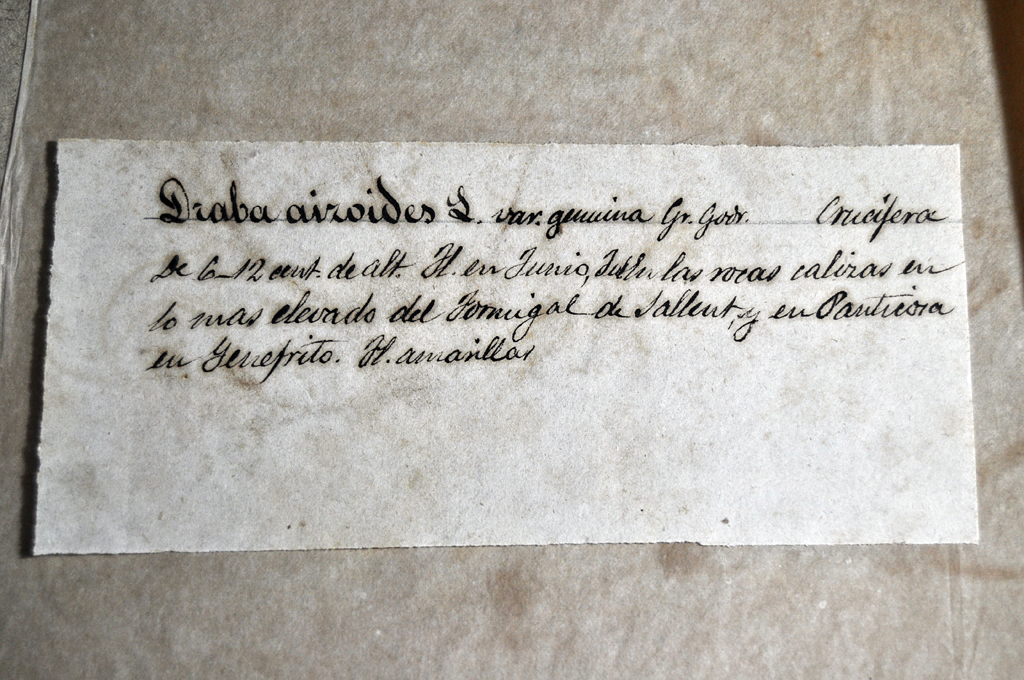 Draba airoides L. var. genuina Gr. Godr. Crucifera
De 6-12 cent. de alt. Fl. en Junio, en las rocas calizas en
lo mas elevado del Formigal de Sallent, y en Panticosa
en Yenefrito. Fl. amarillas